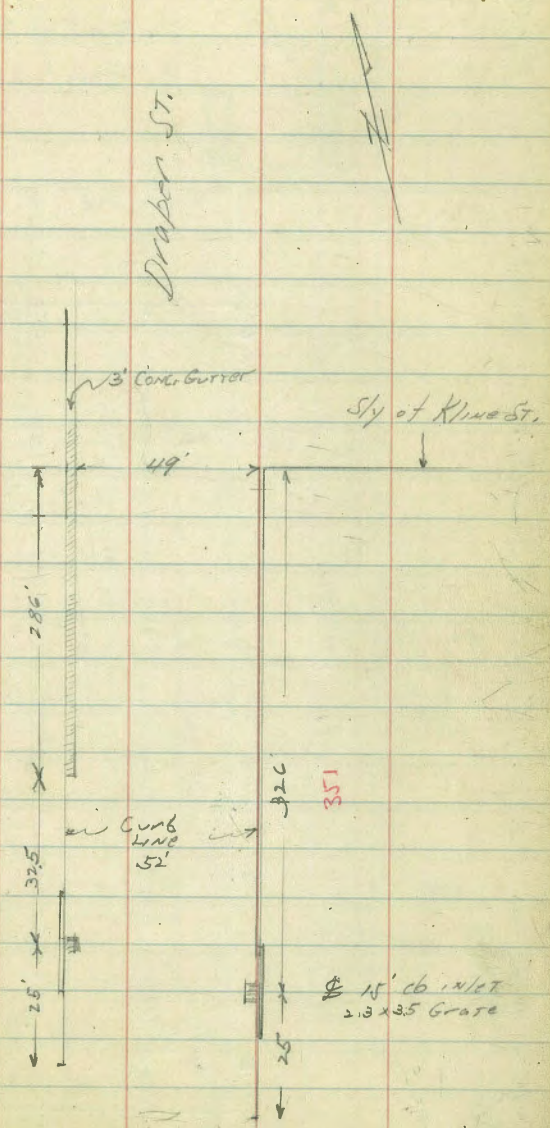 Draper St.
3' Conc. Gutter
Sly of Kline St.
49'
286'
326'
351
Curb
Line
52'
32.5
25'
15' cb inlet
2.3 x 3.5 Grate
25